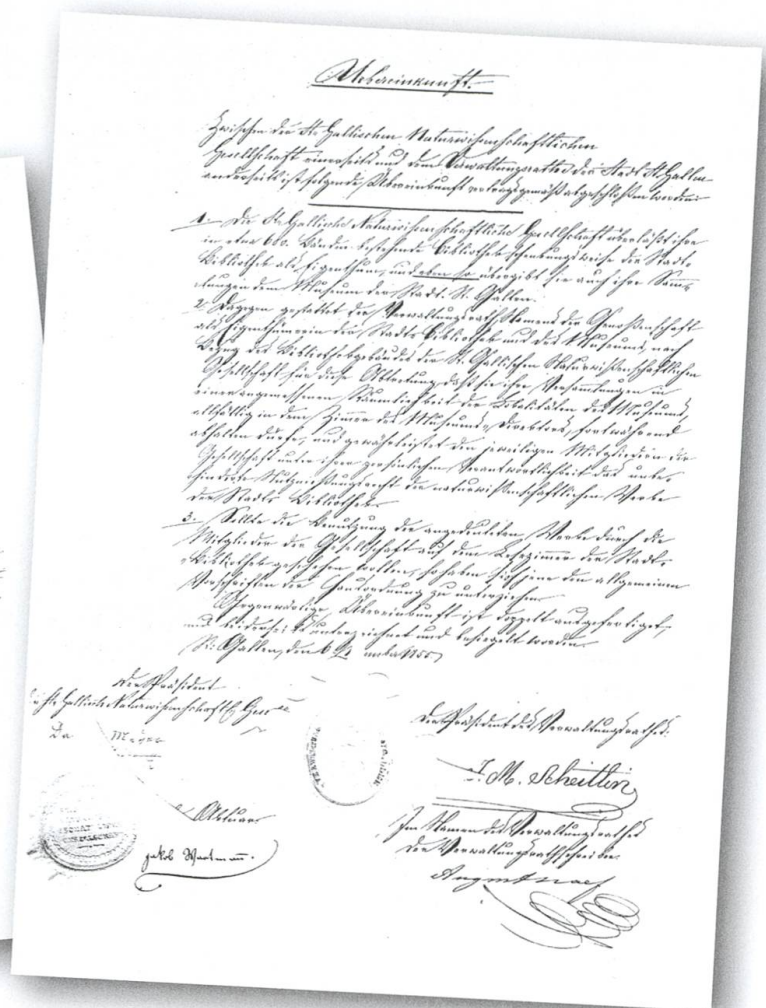 Uebereinkunft.
Zwischen der St. Gallischen Naturwissenschaftlichen
Gesellschaft einerseits und dem Verwaltungsrathe der Stadt St. Gallen
anderseits ist folgende Uebereinkunft vertragsgemäß abgeschlossen worden:
1. Die St. Gallische Naturwissenschaftliche Gesellschaft überläßt ihre
in etwa 600. Bänden bestehende Bibliothek schenkungsweise der Stadt-
Bibliothek als Eigenthum, und eben so übergibt sie auch ihre Samm-
lungen dem Museum der Stadt St. Gallen.
2. Dagegen gestattet der Verwaltungsrath Namens der Genossenschaft
als Eigenthümerin der Stadt-Bibliothek und des Museums, nach
Bezug des Bibliothekgebäudes der St. Gallischen Naturwissenschaftlichen
Gesellschaft für diese Abtretung, daß sie ihre Versammlungen in
einer angemessenen Räumlichkeit der Lokalitäten des Museums,
allfällig in dem Zimmer des Museums-Direktors, fortwährend
abhalten dürfe, und gewährleistet den jeweiligen Mitgliedern der
Gesellschaft unter ihrer persönlichen Verantwortlichkeit das unbe-
hinderte Nutznießungsrecht der naturwissenschaftlichen Werke
der Stadt-Bibliothek.
3. Sollte die Benutzung der angedeuteten Werke durch die
Mitglieder der Gesellschaft auf dem Lesezimmer der Stadt-
Bibliothek geschehen wollen, so haben sich jene den allgemeinen
Vorschriften der Hausordnung zu unterziehen.
Gegenwärtige Uebereinkunft ist doppelt ausgefertigt,
und beiderseits unterzeichnet und besiegelt worden.
St. Gallen, den 6
Der Präsident
St. Gallischen Naturwissenschaftl.
Der Präsident des Verwaltungsrathes:
J. M. Scheitlin
Aktuar
Jakob Wartmann.
Im Namen des Verwaltungsrathes
Der Verwaltungsrathsschreiber
August Naef